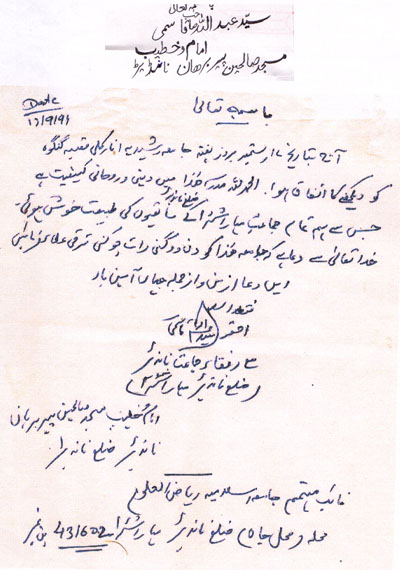 باسمہ تعالیٰ
سید عبد اللہ قاسمی
امام و خطیب
مسجد صالحین پیر برہان ناندیڑ
باسمہ تعالیٰ
Date
11/9/99
آج بتاریخ ۱۱ ستمبر بروز ہفتہ جامعہ رشیدیہ انار کلی قصبہ گنگوہ
کو دیکھنے کا اتفاق ہوا۔ الحمد للہ مدرسہ ھذا میں دینی و روحانی کیفیت ہے
جس سے ہم تمام جماعت ضلع ناندیڑ مہاراشٹرا کے ساتھیوں کی طبیعت خوش ہوئی۔
خدا تعالیٰ سے دعا ہے کہ جامعہ ھذا کو دن دوگنی رات چوگنی ترقی عطا فرمائیں
ایں دعا از من و از جملہ جہاں آمین باد
فقط والسلام
احقر سید عبد اللہ قاسمی
مع رفقاء جماعت ناندیڑ
(ضلع ناندیڑ مہاراشٹرا)
امام و خطیب مسجد صالحین پیر برہان
ناندیڑ ضلع ناندیڑ
نائب مہتمم جامعہ اسلامیہ ریاض العلوم
محلہ و ضلع ناندیڑ مہاراشٹرا 431602 پن نمبر